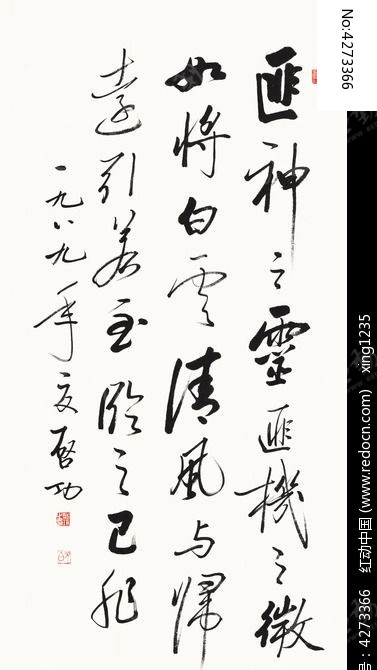 匪神之靈匪機之微
如將白雲清風与歸
遠引若至臨之已非
一九八九年夏啓功
No:4273366
红动中国 (www.redocn.com) xing1235
号：4273366